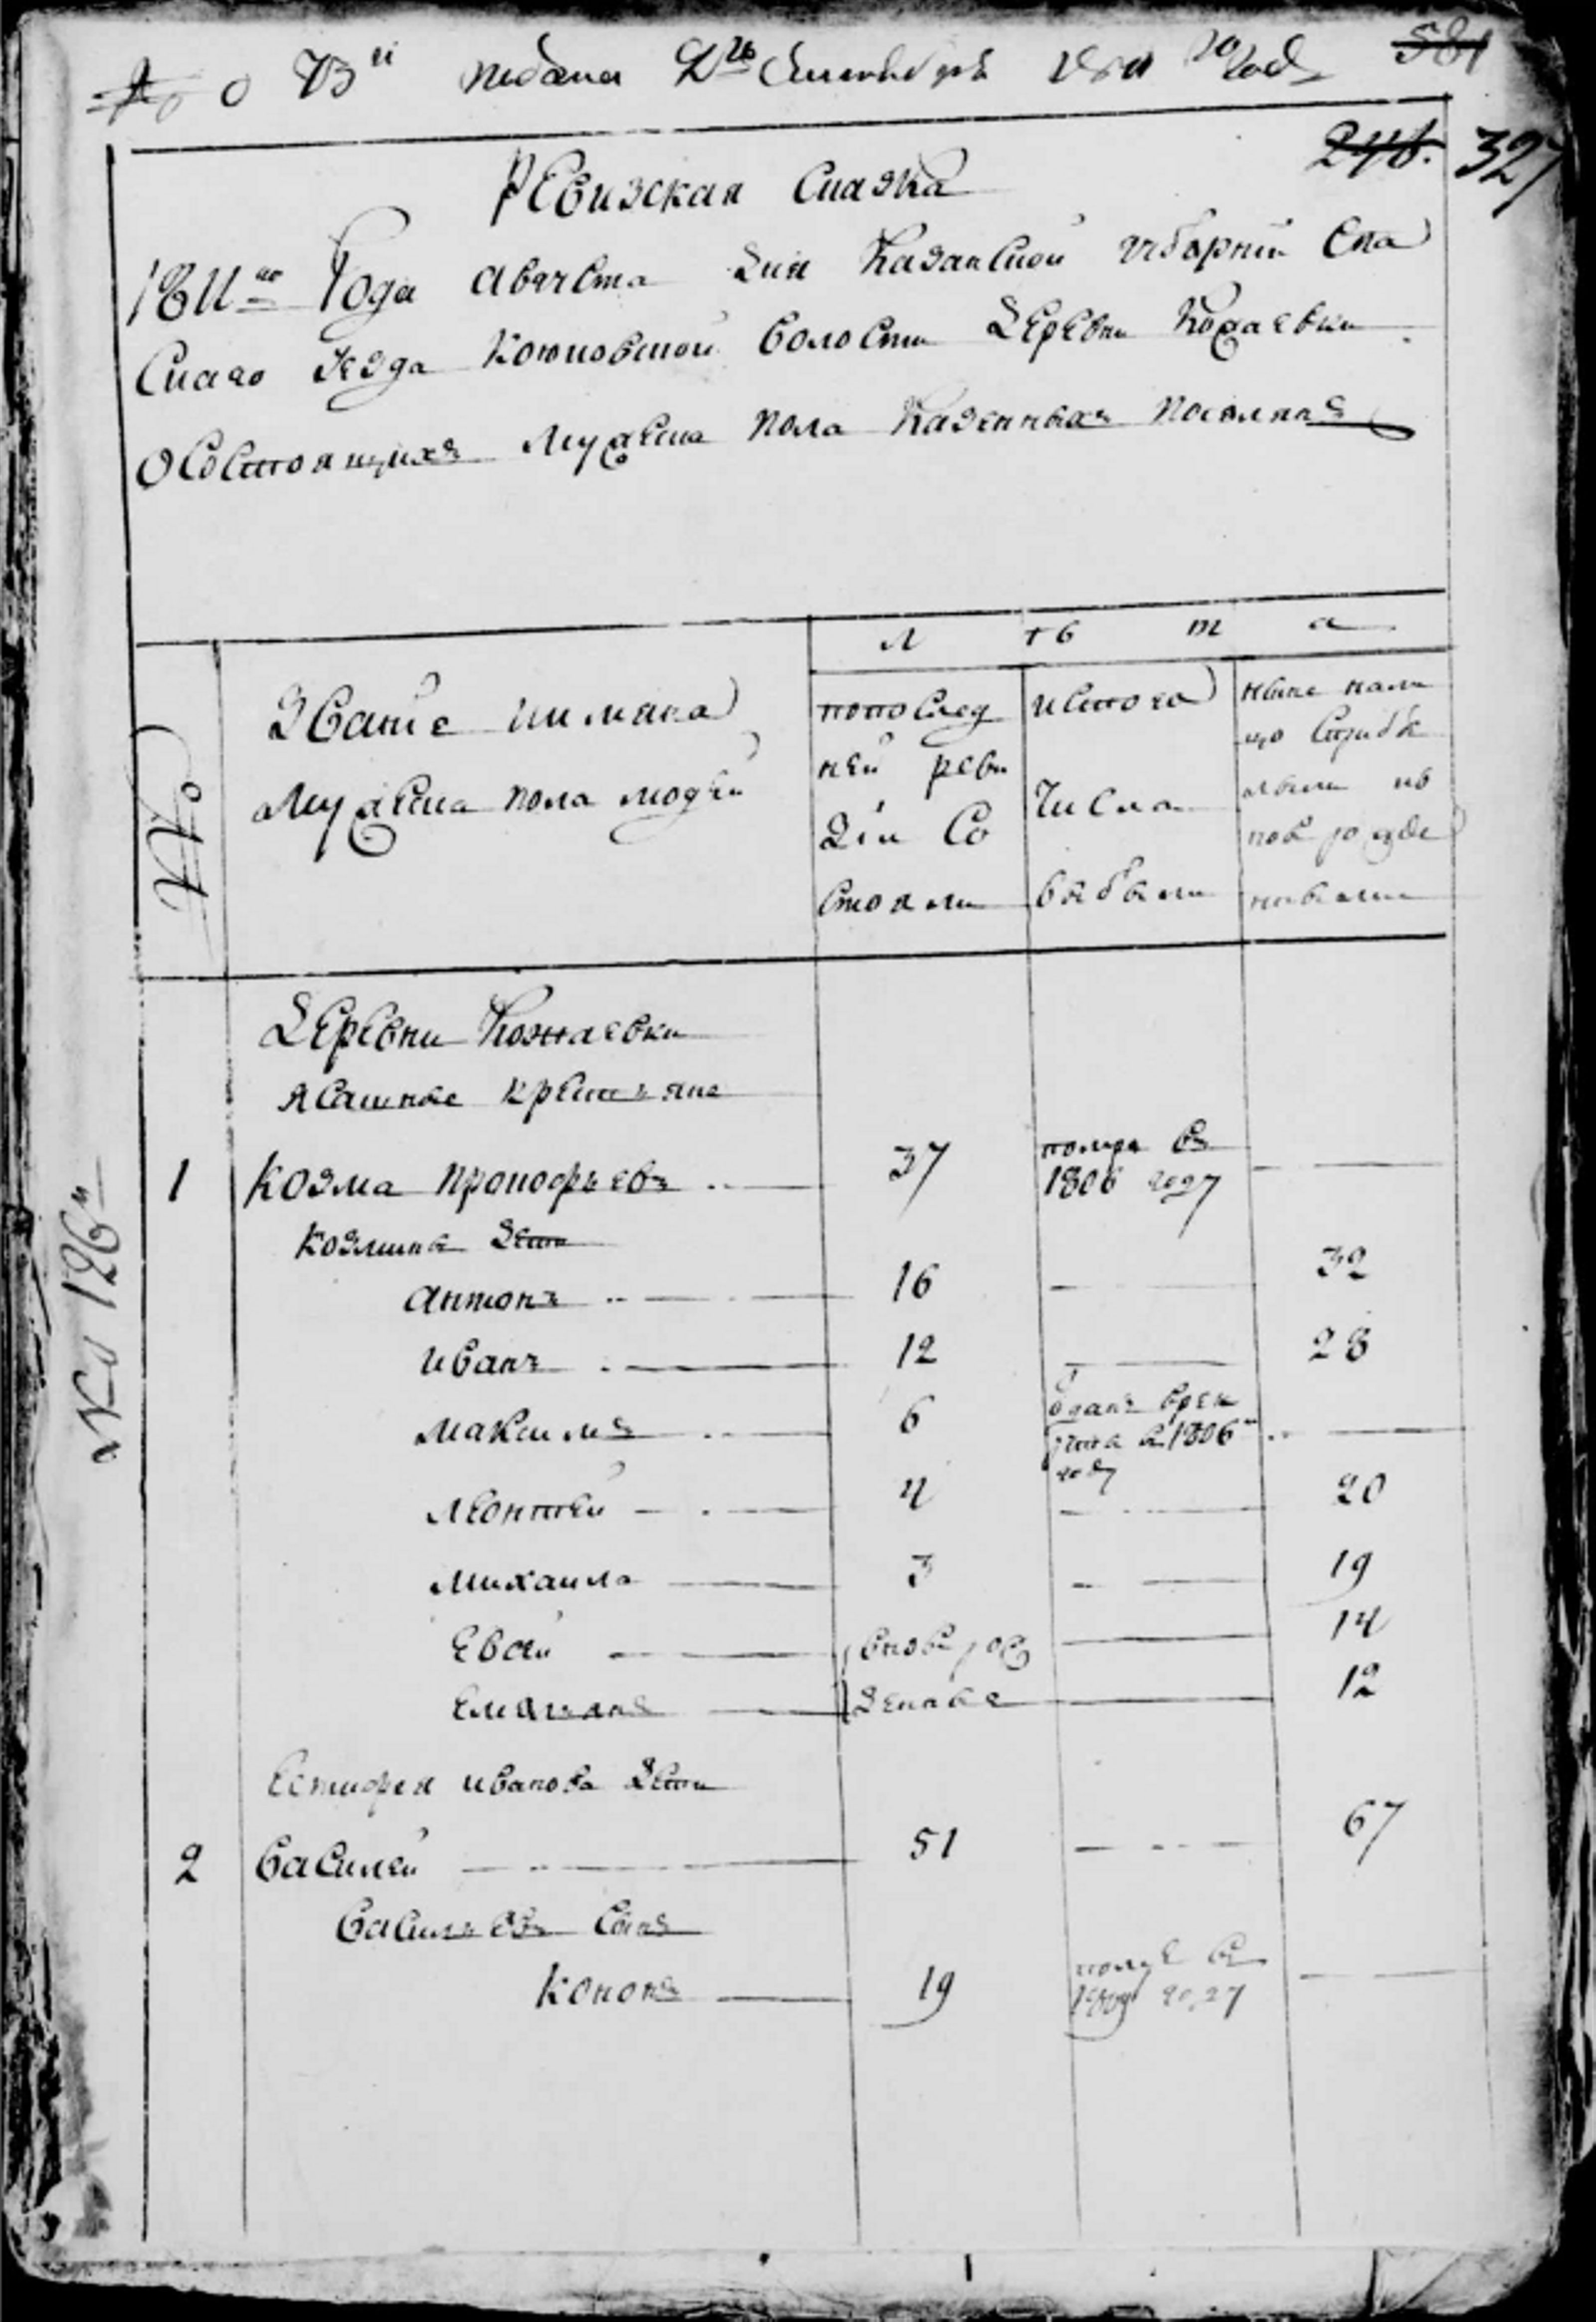 подана сентября 1811го года 581
246. 327
Ревизская сказка
1811го Года августа дня Казанской губернии Спа
скаго уезда волости деревни Кожаевки
о состоящихъ мужеска пола казенныхъ поселянъ
л ѣ т а
№
Звание имяна
мужеска пола людей
по послед
ней реви
зии со
стояли
ис того
числа
выбыли
ныне нали
цо с прибы
лыми и в
новь рожде
ными
Деревни Кожаевки
Ясашные крестьяне
№ 126й
1 Козма Прокофьевъ 37 помре въ
1806 году
Козмины дети
Антонъ 16 32
Иванъ 12 28
Максимъ 6 отданъ в рек
руты в 1806м
году
Леонтей 4 20
Михаила 3 19
Евсей вновь рож 14
Емельянъ дены 12
Естифея Иванова дети
2 Василей 51 67
Васильевъ сынъ
Кононъ 19 помре въ
году